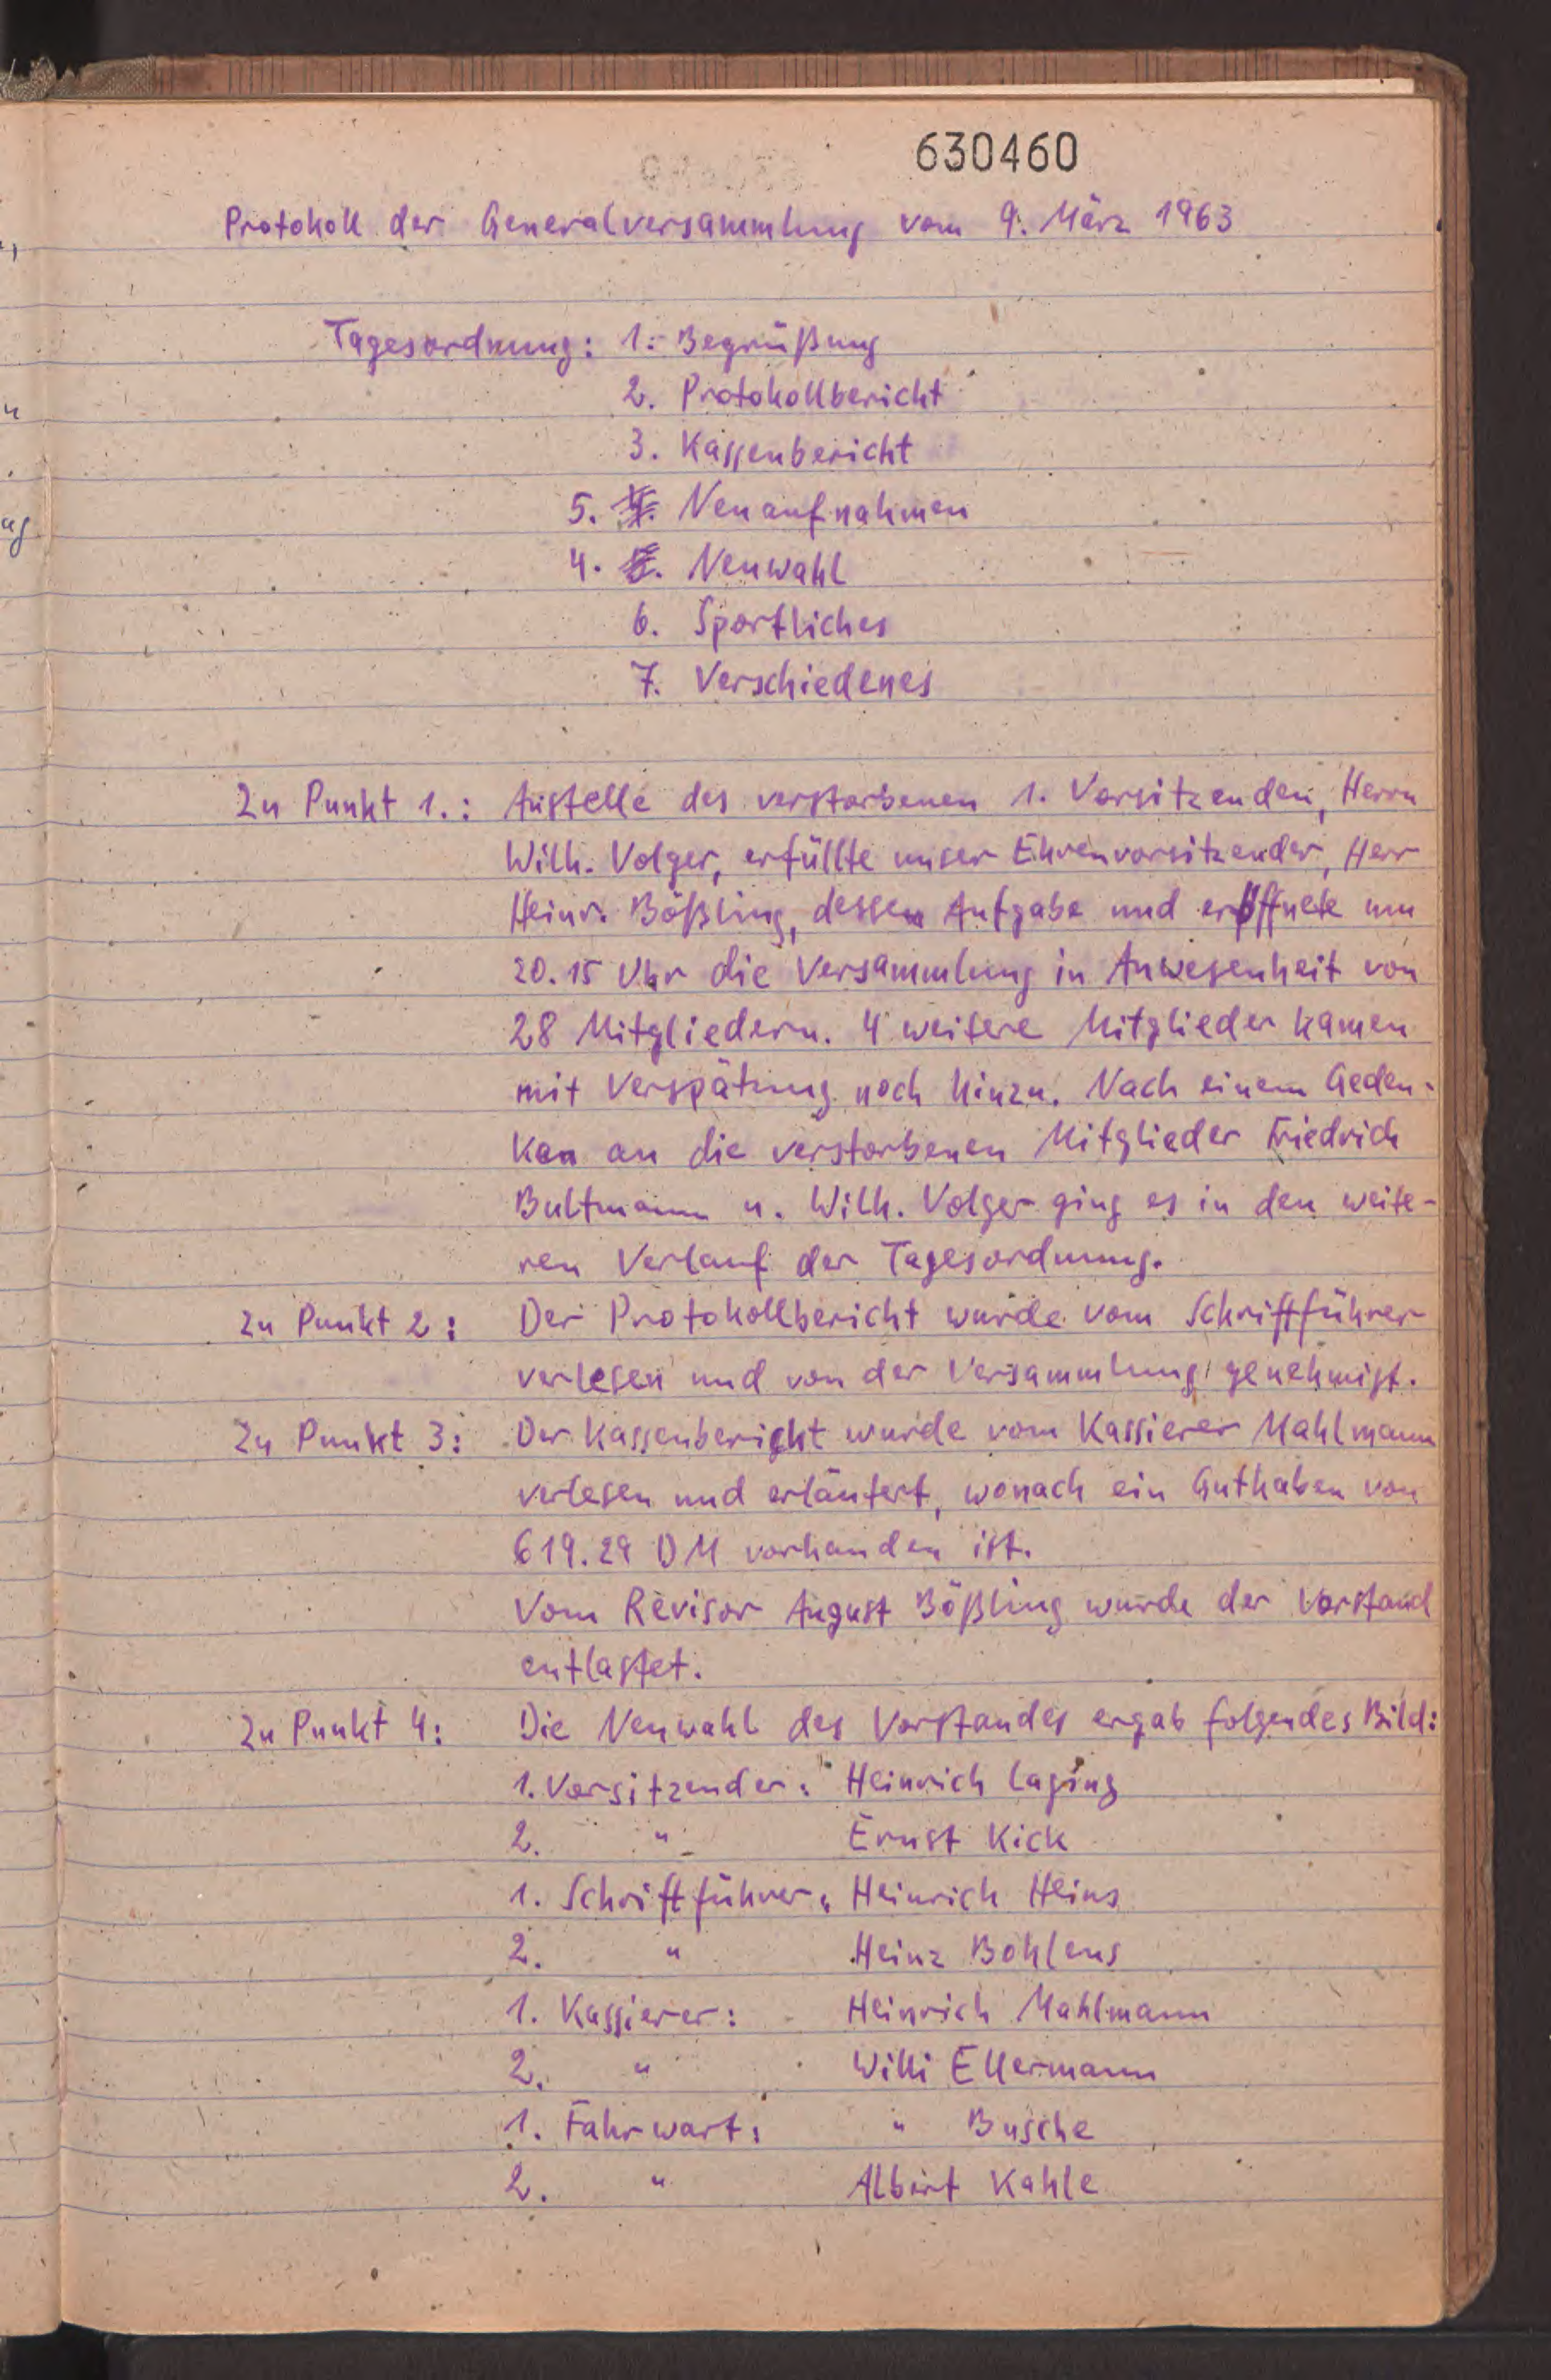 630460
Protokoll der Generalversammlung vom 9. März 1963
Tagesordnung: 1. Begrüßung
2. Protokollbericht
3. Kassenbericht
5. 4. Neuaufnahmen
4. 5. Neuwahl
6. Sportliches
7. Verschiedenes
Zu Punkt 1.: Anstelle des verstorbenen 1. Vorsitzenden, Herrn
Wilh. Volger, erfüllte unser Ehrenvorsitzender, Herr
Heinr. Bößling, dessen Aufgabe und eröffnete um
20.15 Uhr die Versammlung in Anwesenheit von
28 Mitgliedern. 4 weitere Mitglieder kamen
mit Verspätung noch hinzu. Nach einem Geden-
ken an die verstorbenen Mitglieder Friedrich
Bultmann u. Wilh. Volger ging es in den weite-
ren Verlauf der Tagesordnung.
Zu Punkt 2: Der Protokollbericht wurde vom Schriftführer
verlesen und von der Versammlung genehmigt.
Zu Punkt 3: Der Kassenbericht wurde vom Kassierer Mahlmann
verlesen und erläutert, wonach ein Guthaben von
619.29 DM vorhanden ist.
Vom Revisor August Bößling wurde der Vorstand
entlastet.
Zu Punkt 4: Die Neuwahl des Vorstandes ergab folgendes Bild:
1. Vorsitzender: Heinrich Laging
2. " Ernst Kick
1. Schriftführer: Heinrich Heins
2. " Heinz Bohlens
1. Kassierer: Heinrich Mahlmann
2. " Willi Ellermann
1. Fahrwart: " Busche
2. " Albert Kahle